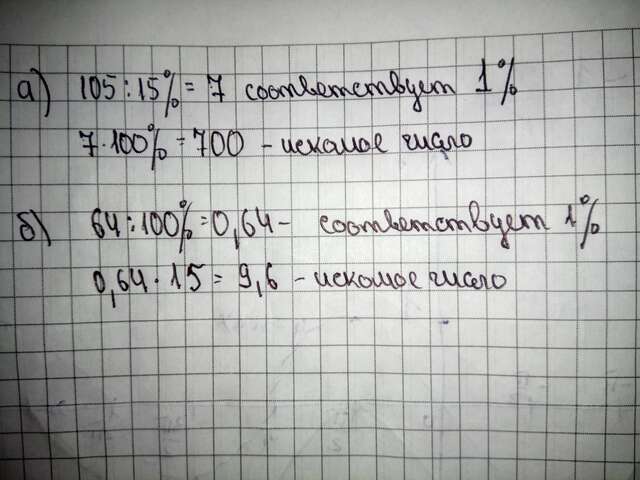 а) 105 : 15% = 7 соответствует 1%
7 · 100% = 700 - искомое число
б) 64 : 100% = 0,64 - соответствует 1%
0,64 · 15 = 9,6 - искомое число